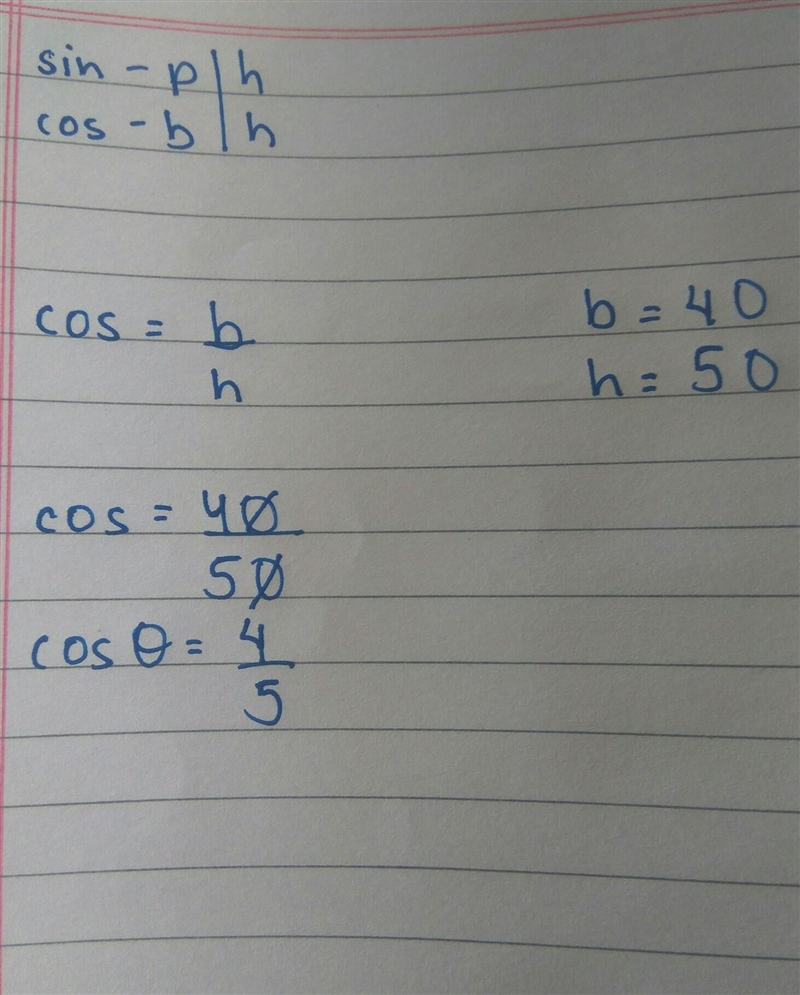 sin - p | h
cos - b | h
cos = b/h
b = 40
h = 50
cos = 40/50
cos θ = 4/5